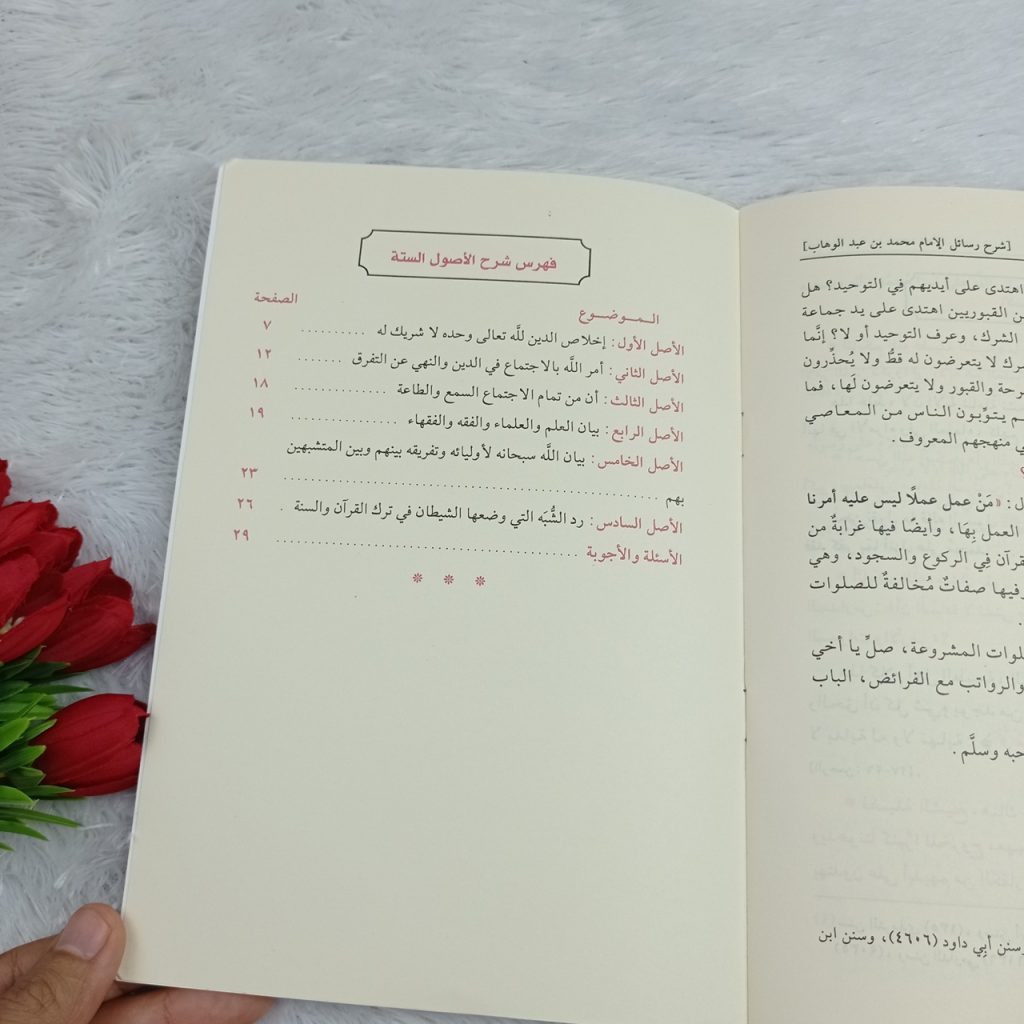 [شرح رسائل الإمام محمد بن عبد الوهاب]
اهتدى على أيديهم فِي التوحيد؟ هل
القبوريين اهتدى على يد جماعة
الشرك، وعرف التوحيد أو لا؟ إنَّما
لا يتعرضون له قطُّ ولا يُحذِّرون
والقبور ولا يتعرضون لَها، فما
يتوِّبون الناس من المعاصي
منهجهم المعروف.
: «مَنْ عمل عملًا ليس عليه أمرنا
العمل بِهَا، وأيضًا فيها غرابةٌ من
فِي الركوع والسجود، وهي
وفيها صفاتٌ مُخالفةٌ للصلوات
المشروعة، صلِّ يا أخي
والرواتب مع الفرائض، الباب
وسلَّم.
وسنن أبي داود (٤٦٠٦)، وسنن ابن
فهرس شرح الأصول الستة
الـمـــوضـــوع الصفحة
الأصل الأول: إخلاص الدين للَّه تعالى وحده لا شريك له .......... ٧
الأصل الثاني: أمر اللَّه بالاجتماع في الدين والنهي عن التفرق ....... ١٢
الأصل الثالث: أن من تمام الاجتماع السمع والطاعة ............ ١٨
الأصل الرابع: بيان العلم والعلماء والفقه والفقهاء ............. ١٩
الأصل الخامس: بيان اللَّه سبحانه لأوليائه وتفريقه بينهم وبين المتشبهين
بهم ................................................ ٢٣
الأصل السادس: رد الشُّبَه التي وضعها الشيطان في ترك القرآن والسنة . ٢٦
الأسئلة والأجوبة ...................................... ٢٩
* * *